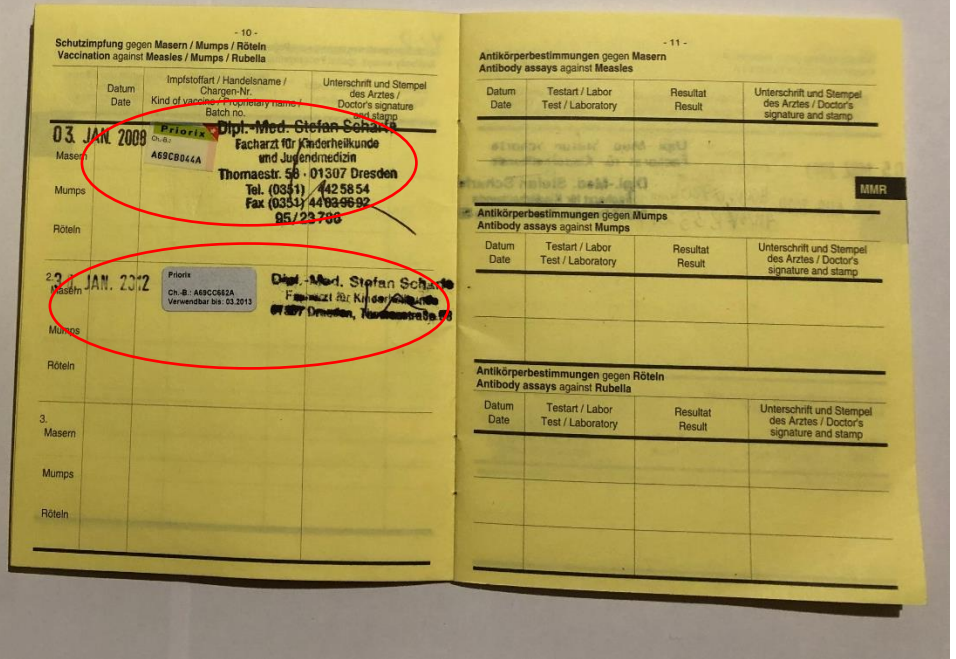 - 10 -
Schutzimpfung gegen Masern / Mumps / Röteln
Vaccination against Measles / Mumps / Rubella
Datum
Date
Impfstoffart / Handelsname /
Chargen-Nr.
Kind of vaccine / Proprietary name /
Batch no.
Unterschrift und Stempel
des Arztes /
Doctor's signature
and stamp
03. JAN. 2008
Priorix
Ch.-B.:
A69CB044A
Dipl.-Med. Stefan Scharfe
Facharzt für Kinderheilkunde
und Jugendmedizin
Thomaestr. 58 · 01307 Dresden
Tel. (0351) 4425854
Fax (0351)
95/23786
Masern
Mumps
Röteln
2.
JAN.
Priorix
Ch.-B.: A69CC662A
Verwendbar bis: 03.2013
Dipl.-Med. Stefan Scharfe
Facharzt für Kinderheilkunde
01307 Dresden,
Masern
Mumps
Röteln
3.
Masern
Mumps
Röteln
- 11 -
Antikörperbestimmungen gegen Masern
Antibody assays against Measles
Datum
Date
Testart / Labor
Test / Laboratory
Resultat
Result
Unterschrift und Stempel
des Arztes / Doctor's
signature and stamp
MMR
Antikörperbestimmungen gegen Mumps
Antibody assays against Mumps
Datum
Date
Testart / Labor
Test / Laboratory
Resultat
Result
Unterschrift und Stempel
des Arztes / Doctor's
signature and stamp
Antikörperbestimmungen gegen Röteln
Antibody assays against Rubella
Datum
Date
Testart / Labor
Test / Laboratory
Resultat
Result
Unterschrift und Stempel
des Arztes / Doctor's
signature and stamp